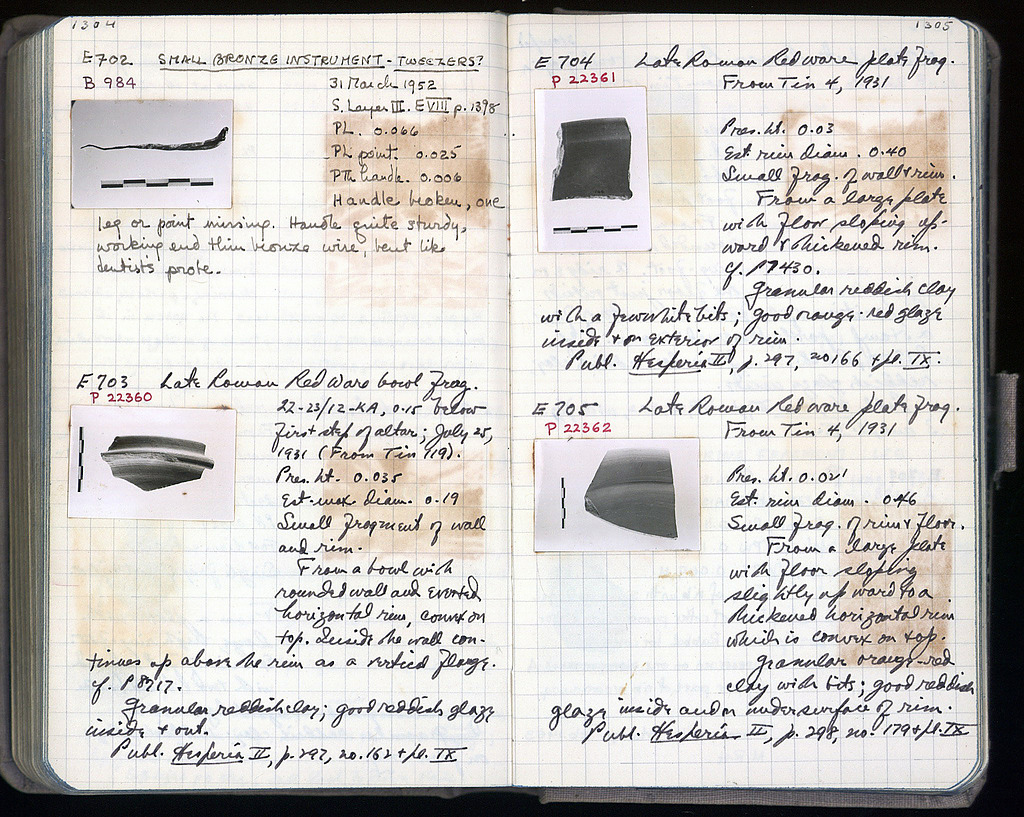 1304
E 702 SMALL BRONZE INSTRUMENT - TWEEZERS?
B 984
31 March 1952
S. Layer III. E VIII p. 1398
PL. 0.066
PL point. 0.025
PTh handle. 0.006
Handle broken, one
leg or point missing. Handle quite sturdy,
working end thin bronze wire, bent like
dentist's probe.
E 703 Late Roman Red Ware bowl frag.
P 22360
22-23/12-KA, 0.15 below
first step of altar; July 25,
1931 (From Tin 119).
Pres. ht. 0.035
Est. max diam. 0.19
Small fragment of wall
and rim.
From a bowl with
rounded wall and everted
horizontal rim, convex on
top. Inside the wall con-
tinues up above the rim as a vertical flange.
cf. P 8717.
Granular reddish clay; good reddish glaze
inside + out.
Publ. Hesperia II, p. 297, no. 162 + pl. IX
1305
E 704 Late Roman Red ware plate frag.
P 22361
From Tin 4, 1931
Pres. ht. 0.03
Est. rim diam. 0.40
Small frag. of wall + rim.
From a large plate
with floor sloping up-
ward + thickened rim.
cf. P 7430.
Granular reddish clay
with a few white bits; good orange-red glaze
inside + on exterior of rim.
Publ. Hesperia II, p. 297, no 166 + pl. IX.
E 705 Late Roman Red ware plate frag.
P 22362
From Tin 4, 1931
Pres. ht. 0.021
Est. rim diam. 0.46
Small frag. of rim + floor.
From a large plate
with floor sloping
slightly upward to a
thickened horizontal rim
which is convex on top.
Granular orange-red
clay with bits; good reddish
glaze inside and on undersurface of rim.
Publ. Hesperia II, p. 298, no. 179 + pl. IX